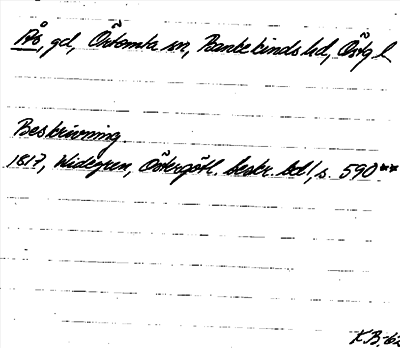 Ås, gd, Örtomta sn, Bankekinds hd, Östg l
Beskrivning
1817, Widegren, Östergötl. beskr. bd 1, s. 590**
K.B.-62